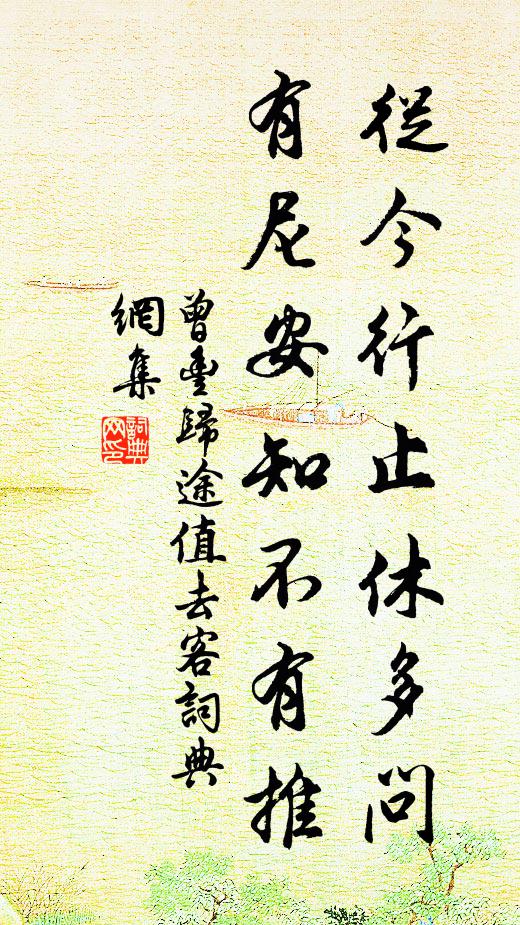 從今行止休多問
有尼安知不有推
曾豐歸途值去客詞典
網集
詞典網印